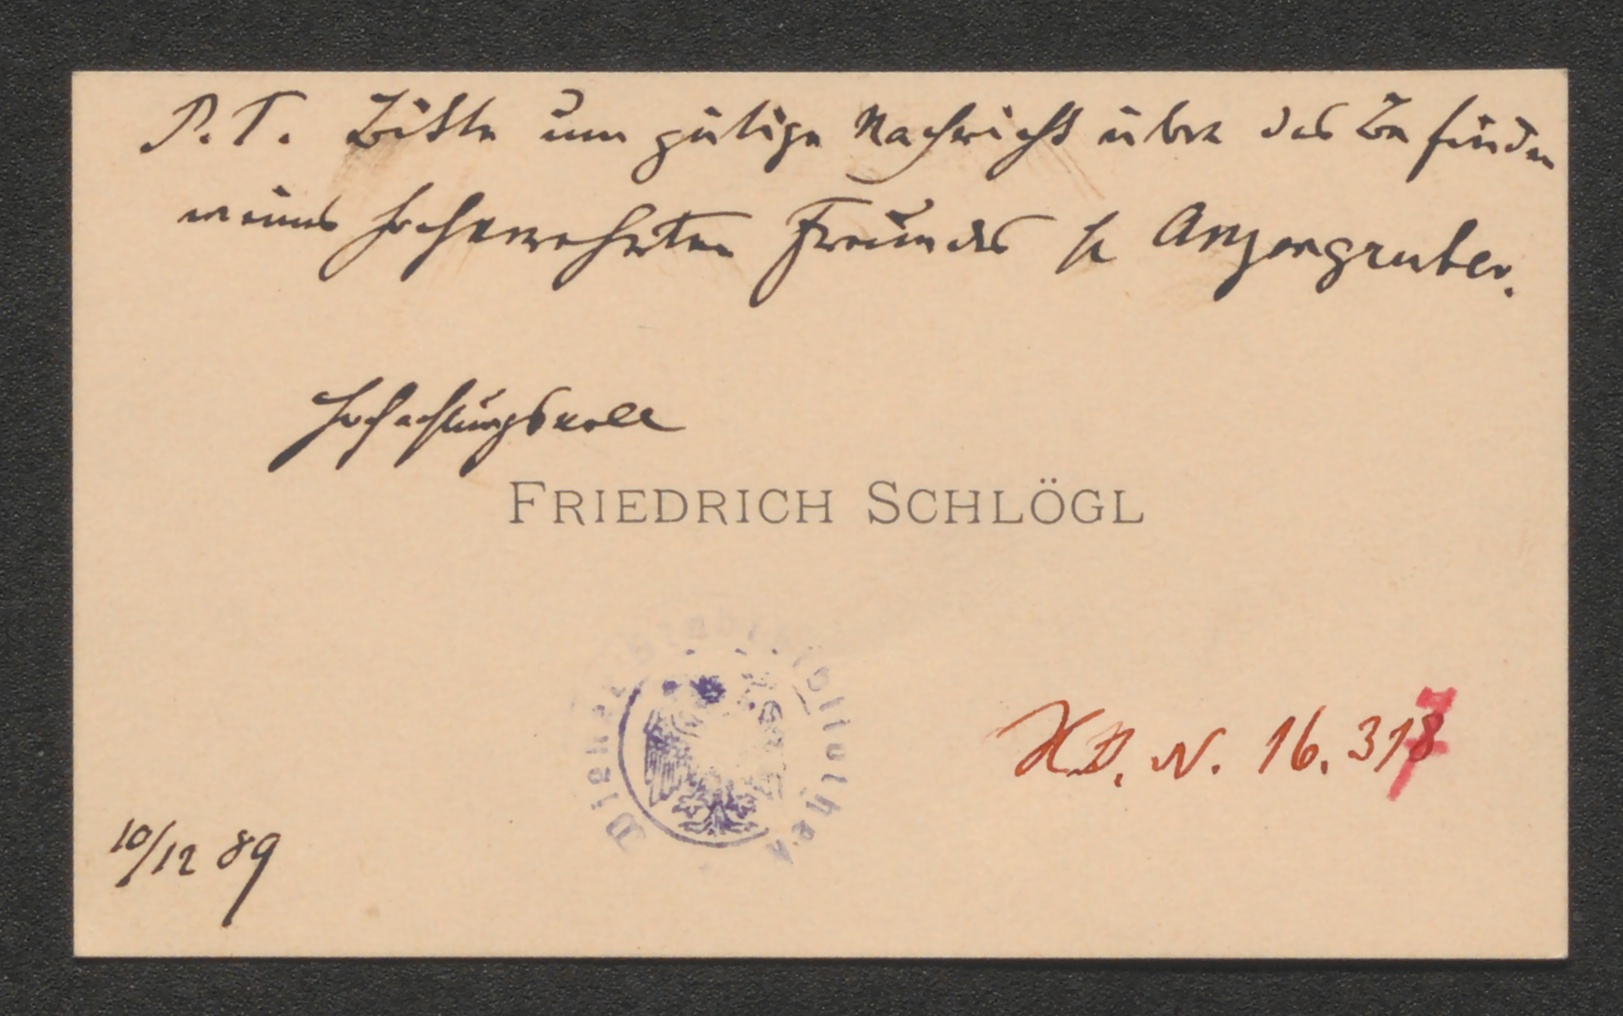 P.T. Bitte um gütige Nachricht über das Befinden
meines hochverehrten Freundes H Anzengruber.
Hochachtungsvoll
FRIEDRICH SCHLÖGL
Wiener Stadtbibliothek
H.I.N. 16.317
10/12 89